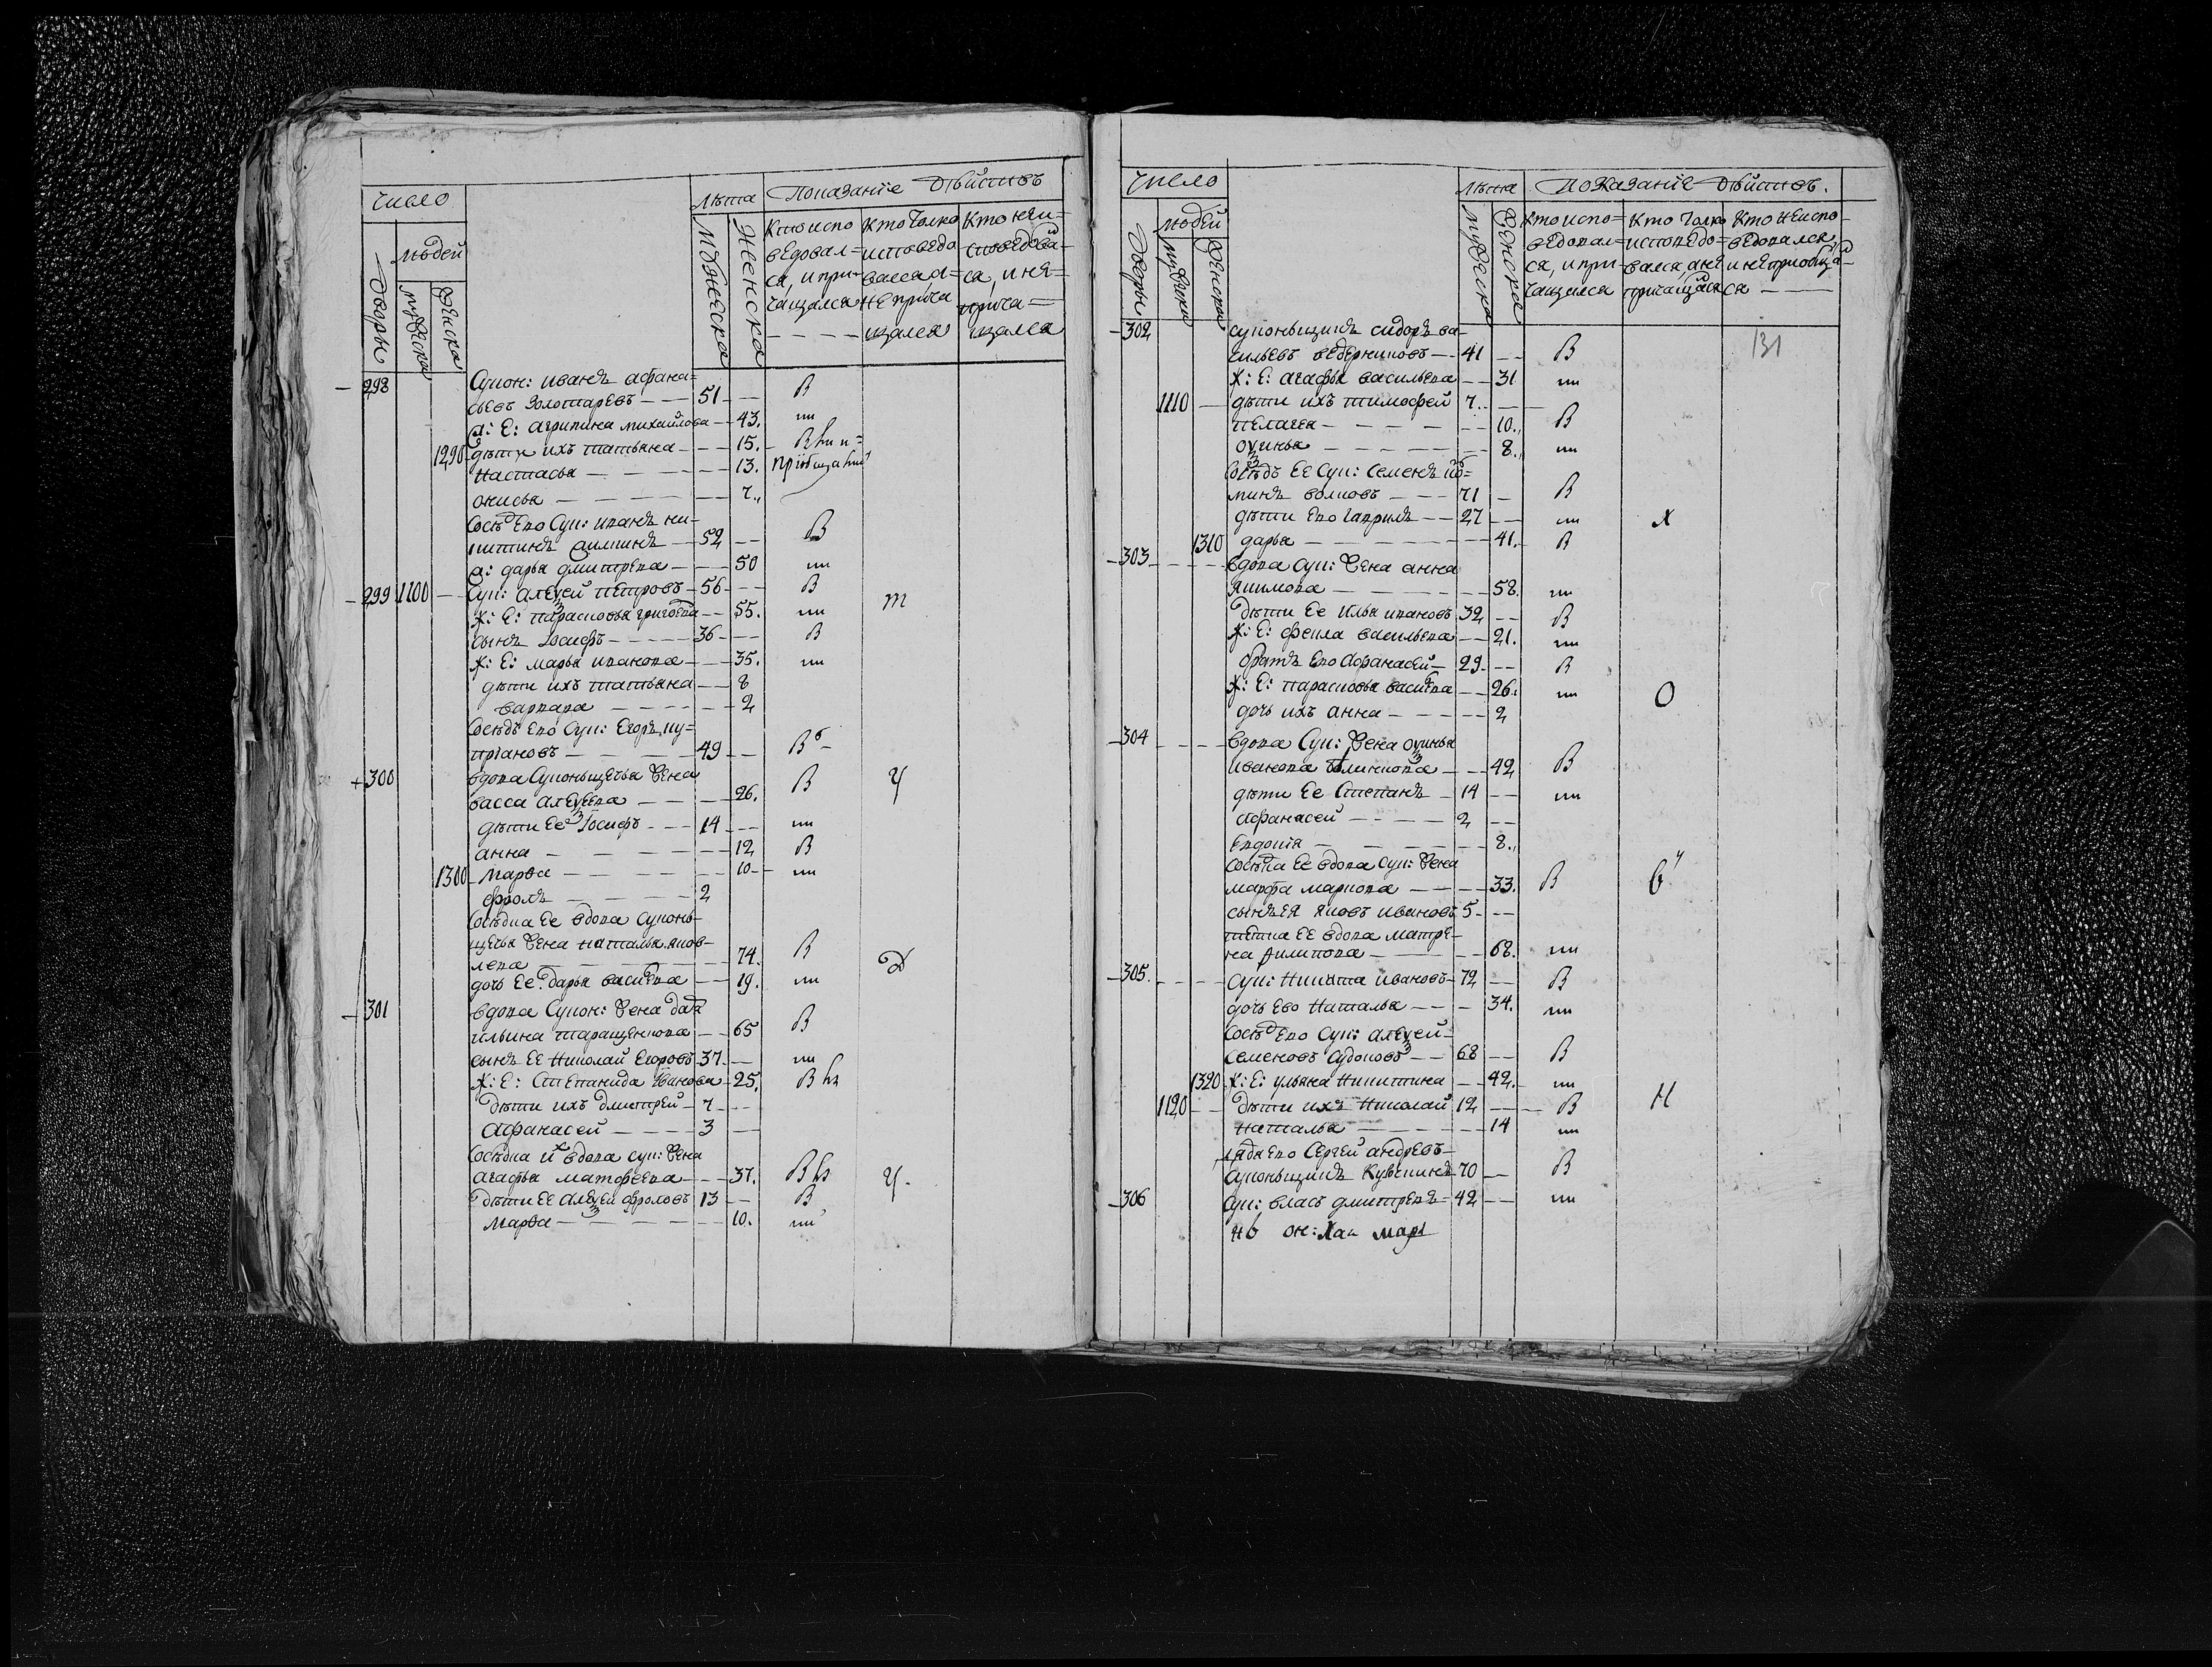 Число
Лѣта Показанїе дѣйствъ
людей
Дворы
мужеска
женска
Мужеска
Женска
Кто испо
ведовал=
ся, и при-
чащался
Кто толко
исповедо
вался, а=
не прича
щался
Кто неи=
споведова
ся, и не=
прича=
щался
298
Сукон: иванъ афана=
сьевъ Золотаревъ 51 В
ж: Е: агрипина михайлова 43.
1290 дѣти ихъ татьяна 15.
настасья 13. приобщени
онисья 7.
Сосѣд Ево Сук: иванъ ни-
китинъ 52 В
ж: дарья дмитрева 50
299 1100 Сук: алеѯей петровъ 56 В
ж: Е: парасковья григоева 55. т
сынъ Іосифъ 36 В
ж: Е: марья иванова 35.
дѣти ихъ татьяна 8
варвара 2
Сосѣдъ Ево Сук: Егоръ ку=
приановъ 49 В
300 вдова Суконьщичья жена
васса алеѯеева 26. В ч
дѣти Ее Іосифъ 14
анна 12 В
1300 марѳа 10
фролъ 2
Сосѣдка Ее вдова Суконь-
щичья жена наталья яков-
лева 74. В
дочь Ее дарья васи՚ева 19. Д
301 вдова Сукон: жена дарья
ильина таращенкова 65 В
сынъ Ее Николай Егоровъ 37
ж: Е: Степанида иванова 25. В
дѣти ихъ дмитрей 7
афанасей 3
Сосѣдка их вдова сук: жена
агафья матфеева 37. В ч
дѣти Ее алеѯей фроловъ 13 В
марѳа 10.
Число
Лѣта Показанїе дѣйствъ.
людей
Дворы
мужеска
женска
мужеска
женска
Кто испо=
ведовал=
ся, и при-
чащался
Кто толко
исповедо=
вался, а не
причащался
Кто не испо-
ведовался,
и неприобща-
ся
131
302 суконьщикъ сидоръ ва-
сильевъ ведерниковъ 41 В
ж: Е: агафья васильева 31
1110 дѣти ихъ тимофей 7
пелагея 10. В
оѯинья 8.
Сосѣдъ Ее Сук: Семенъ
минъ волковъ 71 В
дѣти Ево гаврилъ 27 х
1310 дарья 41. В
303 вдова Сук: жена анна
якимова 58.
дѣти Ее илья ивановъ 32 В
ж: Е: фекла васильева 21.
братъ Ево афанасей 29 В
ж: Е: парасковья васи՚ева 26. О
дочь ихъ анна 2
304 вдова Сук: жена оѯинья
иванова 42 В
дѣти Ее Степанъ 14
афанасей 2
Евдокїя 8.
Сосѣдка Ее вдова сук: жена
марфа маркова 33. В
сынъ Ея яковъ ивановъ 5
тетка Ее вдова матре-
на филипова 68.
305. сук: Никита ивановъ 72 В
дочь Ево Наталья 34.
Сосѣд Ево Сук: алеѯей
семеновъ 68 В
1320 ж: Е: ульяна Никитина 42.
1120 дѣти ихъ Николай 12 В Н
наталья 14
дядя Ево Сергей андреевъ
Суконьщикъ Кувшинъ 70 В
306 Сук: власъ дмитревъ 42